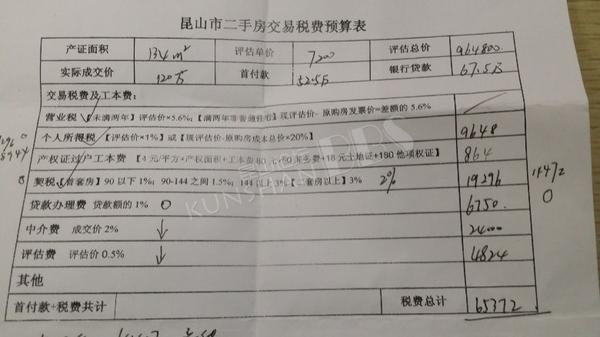 昆山市二手房交易税费预算表
产证面积 134m² 评估单价 7200 评估总价 964800
实际成交价 120万 首付款 52.5万 银行贷款 67.5万
交易税费及工本费:
营业税 【未满两年】评估价×5.6%;【满两年非普通住宅】现评估价-原购房发票价=差额的5.6%
个人所得税 【评估价×1%】或【现评估价-原购房成本总价×20%】 9648
产权证过户工本费 【4元/平方×产权面积+工本费80 +18元土地证+180他项权证】 864
契税 【首套房】90以下1%; 90-144之间1.5%; 144以上3%【二套房以上】3% 2% 19296 14472
贷款办理费 贷款额的1% 0 6750 0
中介费 成交价2% ↓ 24000
评估费 评估价0.5% ↓ 4824
其他
首付款+税费共计 税费总计 65372
KUNSHAN BBS